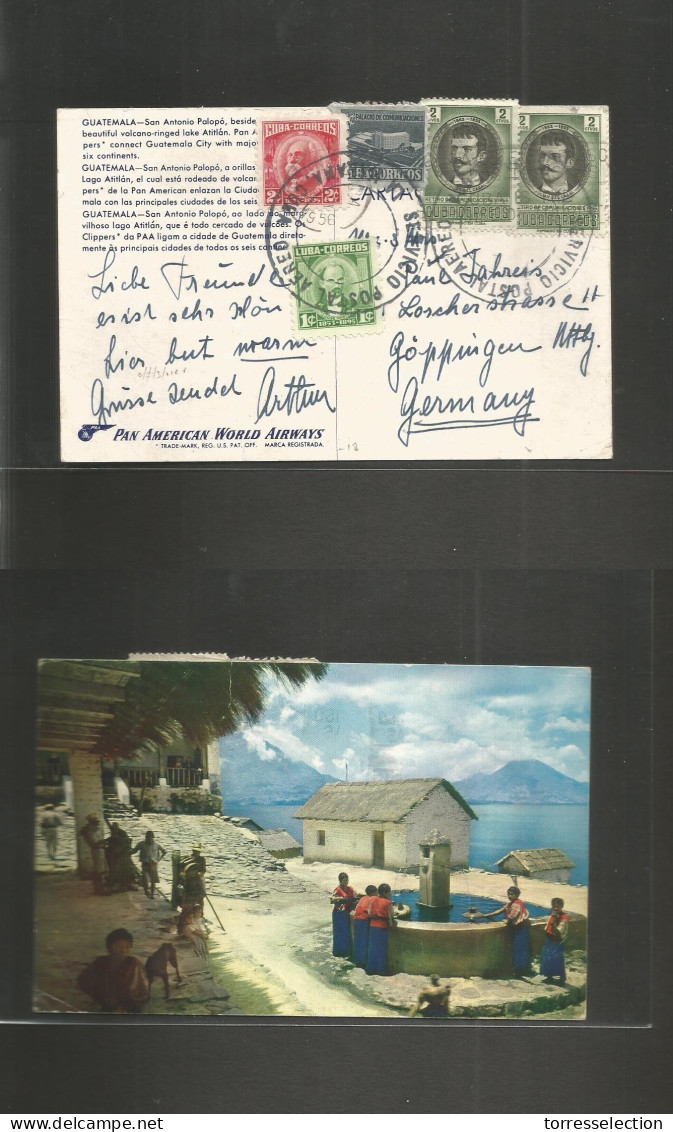 GUATEMALA—San Antonio Palopó, beside
beautiful volcano-ringed lake Atitlán. Pan A
pers* connect Guatemala City with majo
six continents.
GUATEMALA—San Antonio Palopó, a orillas
Lago Atitlán, el cual está rodeado de volcan
pers* de la Pan American enlazan la Ciuda
mala con las principales ciudades de los seis
GUATEMALA—San Antonio Palopó, ao lado do mara-
vilhoso lago Atitlán, que é todo cercado de vulcões. Os
Clippers* da PAA ligam a cidade de Guatemala direta-
mente às principais cidades de todos os seis conti
CUBA-CORREOS
2¢
PALACIO DE COMUNICACIONES
CUBA CORREOS
2 2
CTVOS
CUBA CORREOS
2 2
CTVOS
CUBA CORREOS
CUBA-CORREOS
1¢ 1¢
1853-1895
SERVICIO POSTAL AEREO
HABANA, CUBA
SERVICIO POSTAL AEREO
Liebe Freunde
es ist sehr schön
hier but warm
Grüsse sendet Arthur
Paul Jahreis
Loscherstrasse 11
Göppingen
Germany
PAA
PAN AMERICAN WORLD AIRWAYS
* TRADE-MARK, REG. U.S. PAT. OFF. MARCA REGISTRADA.
-18
torresselection